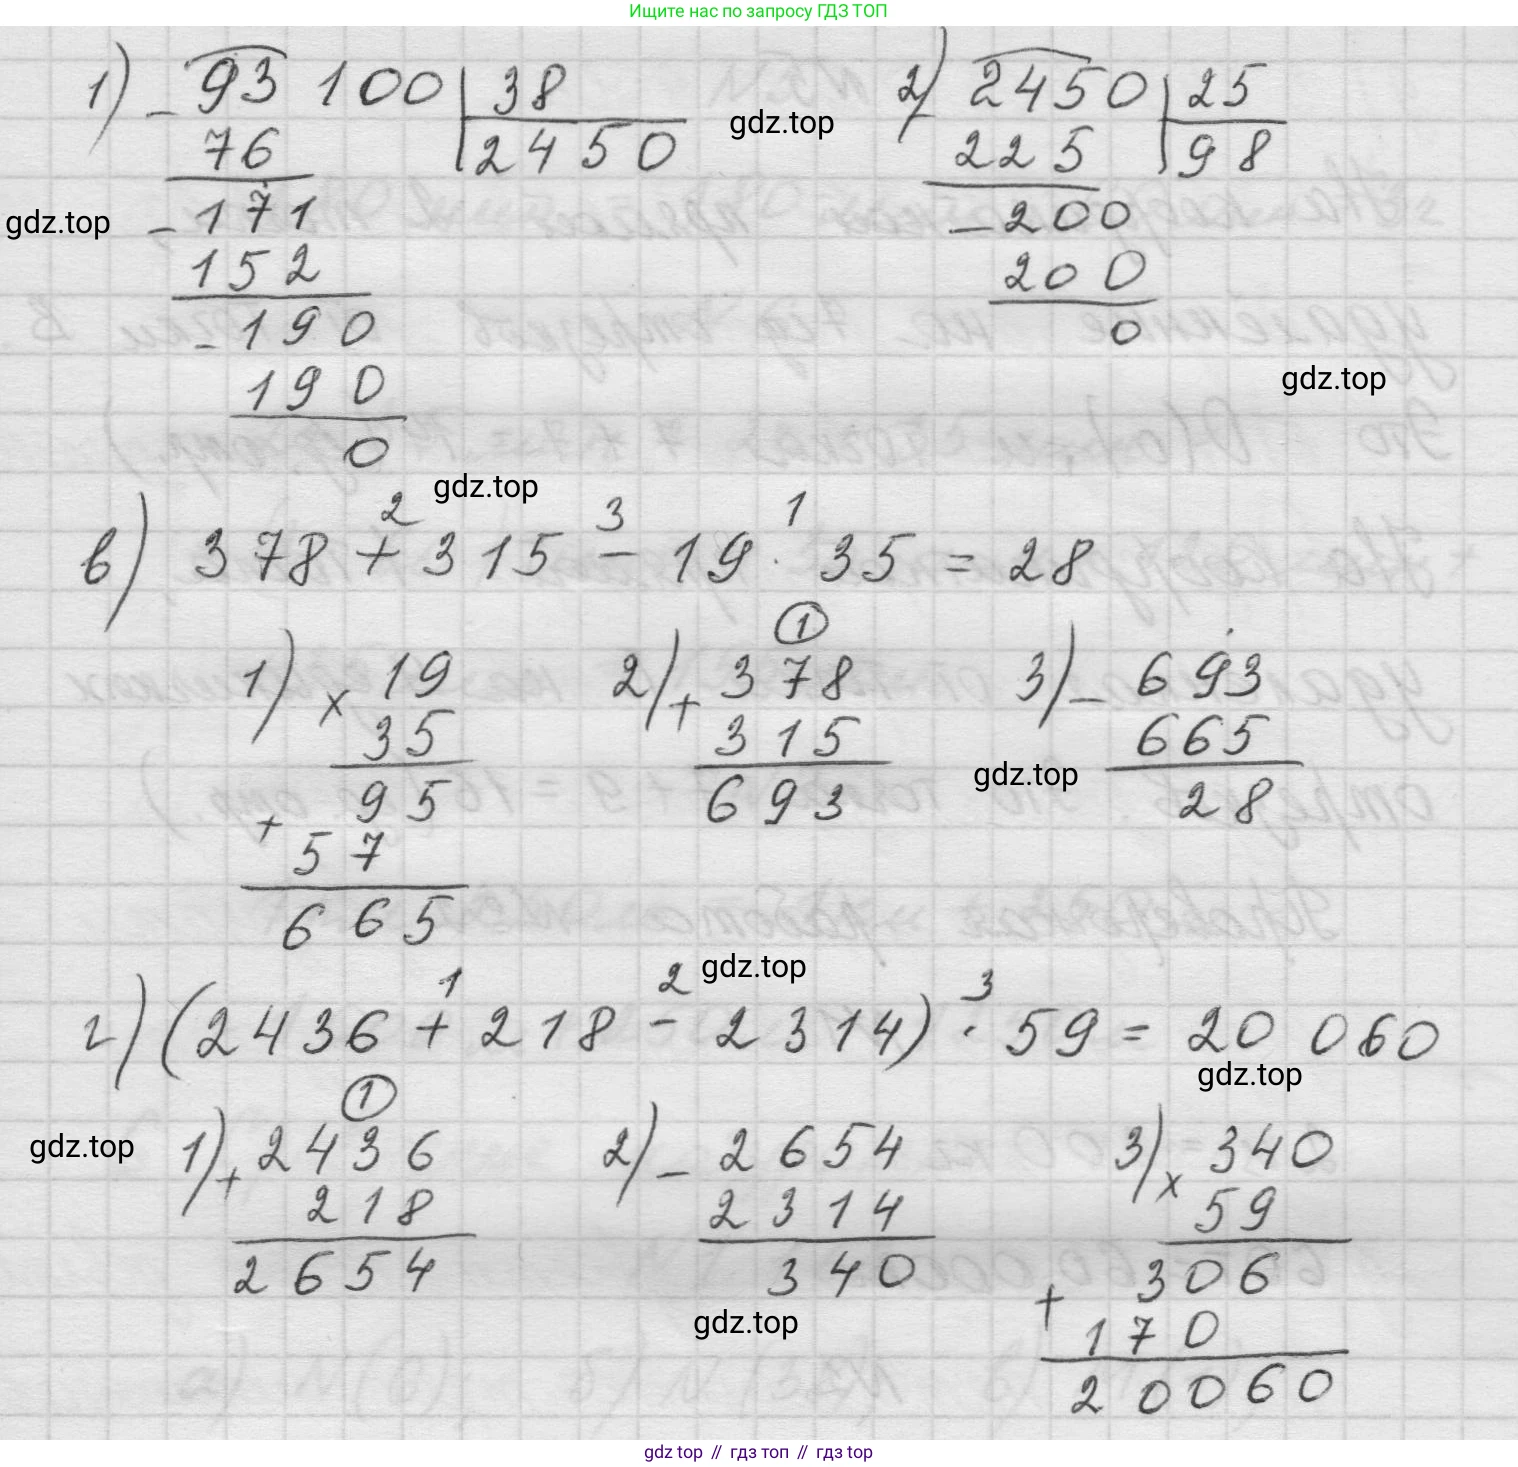 Ищите нас по запросу ГДЗ ТОП
1) - 93 100 | 38
76 | 2450
- 171
152
- 190
190
0
gdz.top
gdz.top
2) - 2450 | 25
225 | 98
- 200
200
0
gdz.top
gdz.top
2 3 1
в) 378 + 315 - 19 · 35 = 28
1) × 19
35
+ 95
57
665
1
2) + 378
315
693
3) - 693
665
28
gdz.top
gdz.top
1 2 3
г) (2436 + 218 - 2314) · 59 = 20 060
gdz.top
gdz.top
1
1) + 2436
218
2654
2) - 2654
2314
340
gdz.top
3) × 340
59
+ 306
170
20060
gdz top // гдз топ // гдз top